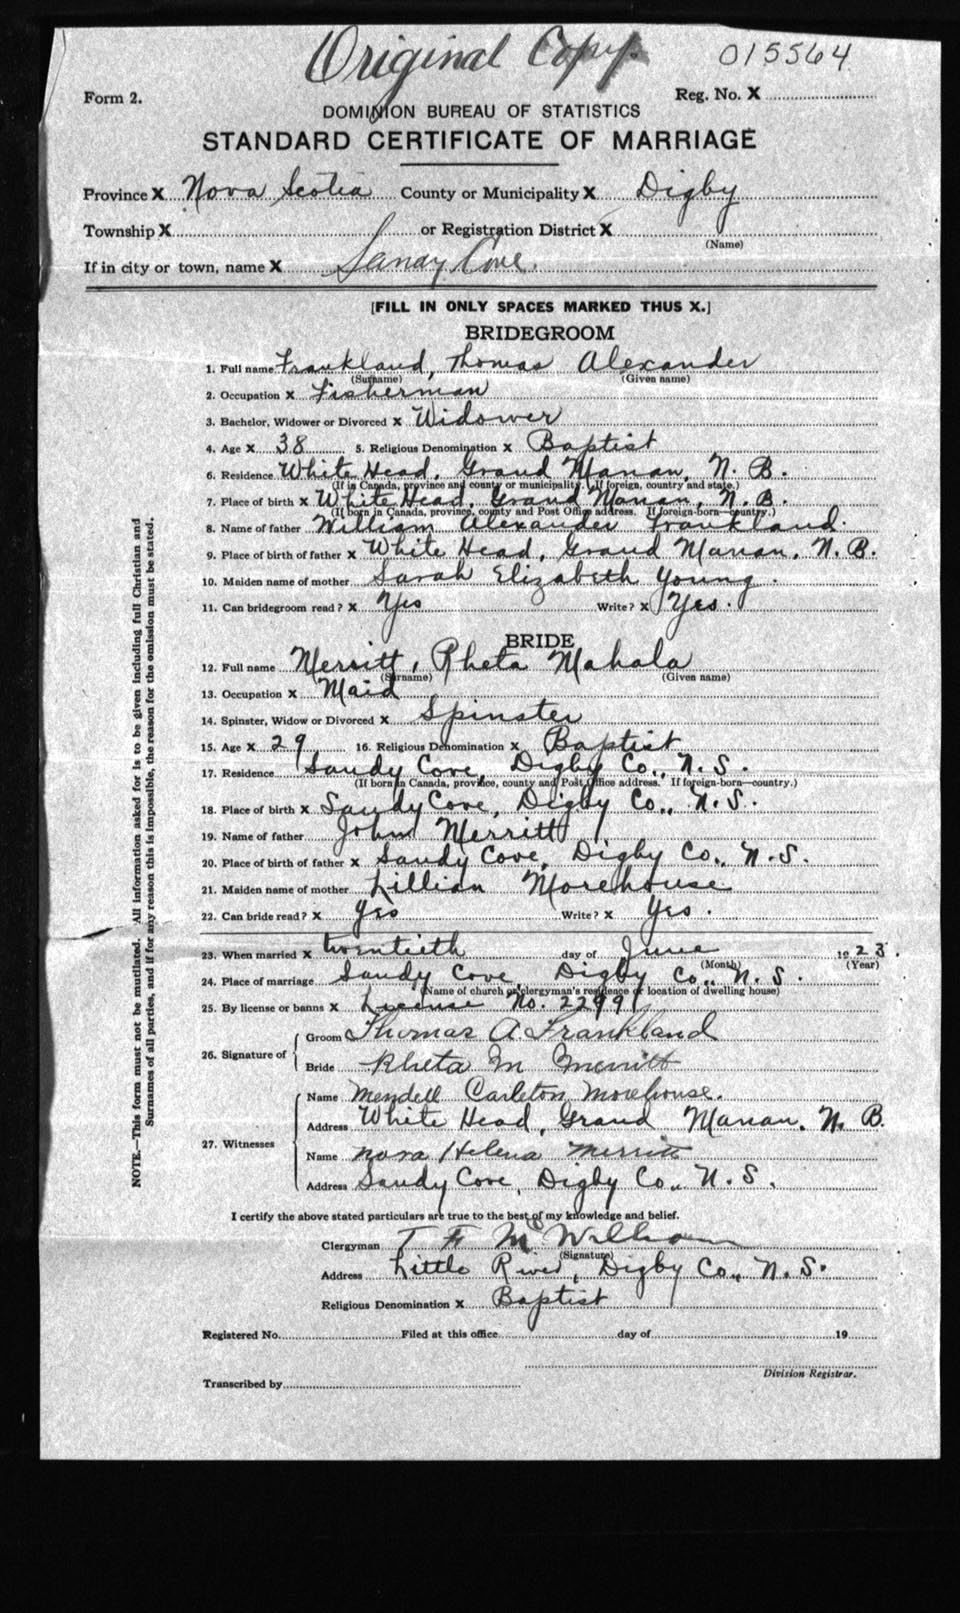 Original Copy. 015564
Form 2. Reg. No. X
DOMINION BUREAU OF STATISTICS
STANDARD CERTIFICATE OF MARRIAGE
Province X Nova Scotia County or Municipality X Digby
Township X or Registration District X
(Name)
If in city or town, name X Sandy Cove.
[FILL IN ONLY SPACES MARKED THUS X.]
BRIDEGROOM
1. Full name Frankland, Thomas Alexander
(Surname) (Given name)
2. Occupation X Fisherman
3. Bachelor, Widower or Divorced X Widower
4. Age X 38 5. Religious Denomination X Baptist
6. Residence White Head, Grand Manan, N. B.
(If in Canada, province and county or municipality. If foreign, country and state.)
7. Place of birth X White Head, Grand Manan, N. B.
(If born in Canada, province, county and Post Office address. If foreign-born—country.)
8. Name of father William Alexander Frankland.
9. Place of birth of father X White Head, Grand Manan, N. B.
10. Maiden name of mother Sarah Elizabeth Young.
11. Can bridegroom read? X Yes Write? X Yes.
BRIDE
12. Full name Merritt, Rheta Mahala
(Surname) (Given name)
13. Occupation X Maid
14. Spinster, Widow or Divorced X Spinster
15. Age X 29 16. Religious Denomination X Baptist
17. Residence Sandy Cove, Digby Co., N. S.
(If born in Canada, province, county and Post Office address. If foreign-born—country.)
18. Place of birth X Sandy Cove, Digby Co., N. S.
19. Name of father John Merritt
20. Place of birth of father X Sandy Cove, Digby Co., N. S.
21. Maiden name of mother Lillian Morehouse
22. Can bride read? X Yes Write? X Yes.
23. When married X twentieth day of June 1923.
(Month) (Year)
24. Place of marriage Sandy Cove, Digby Co., N. S.
(Name of church or clergyman's residence or location of dwelling house)
25. By license or banns X License No. 22991
26. Signature of
Groom Thomas A Frankland
Bride Rheta M Merritt
27. Witnesses
Name Mendell Carleton Morehouse.
Address White Head, Grand Manan, N. B.
Name Nora Helena Merritt
Address Sandy Cove, Digby Co., N. S.
I certify the above stated particulars are true to the best of my knowledge and belief.
Clergyman T F McWilliam
(Signature)
Address Little River, Digby Co., N. S.
Religious Denomination X Baptist
Registered No. Filed at this office day of 19
Division Registrar.
Transcribed by
NOTE.—This form must not be mutilated. All information asked for is to be given including full Christian and
Surnames of all parties, and if for any reason this is impossible, the reason for the omission must be stated.